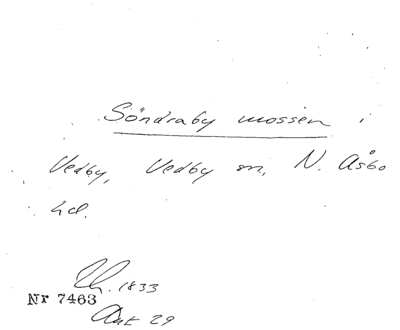 Söndraby mossen i
Vedby, Vedby sn, N. Åsbo
hd.
1833
Nr 7463
Akt 29